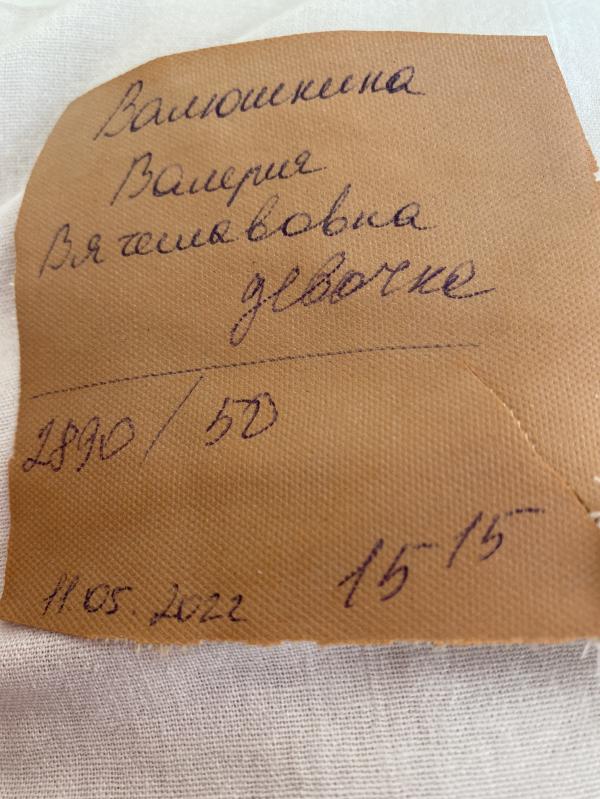 Валюшкина
Валерия
Вячеславовна
девочка
2890/50
11.05.2022 15 15